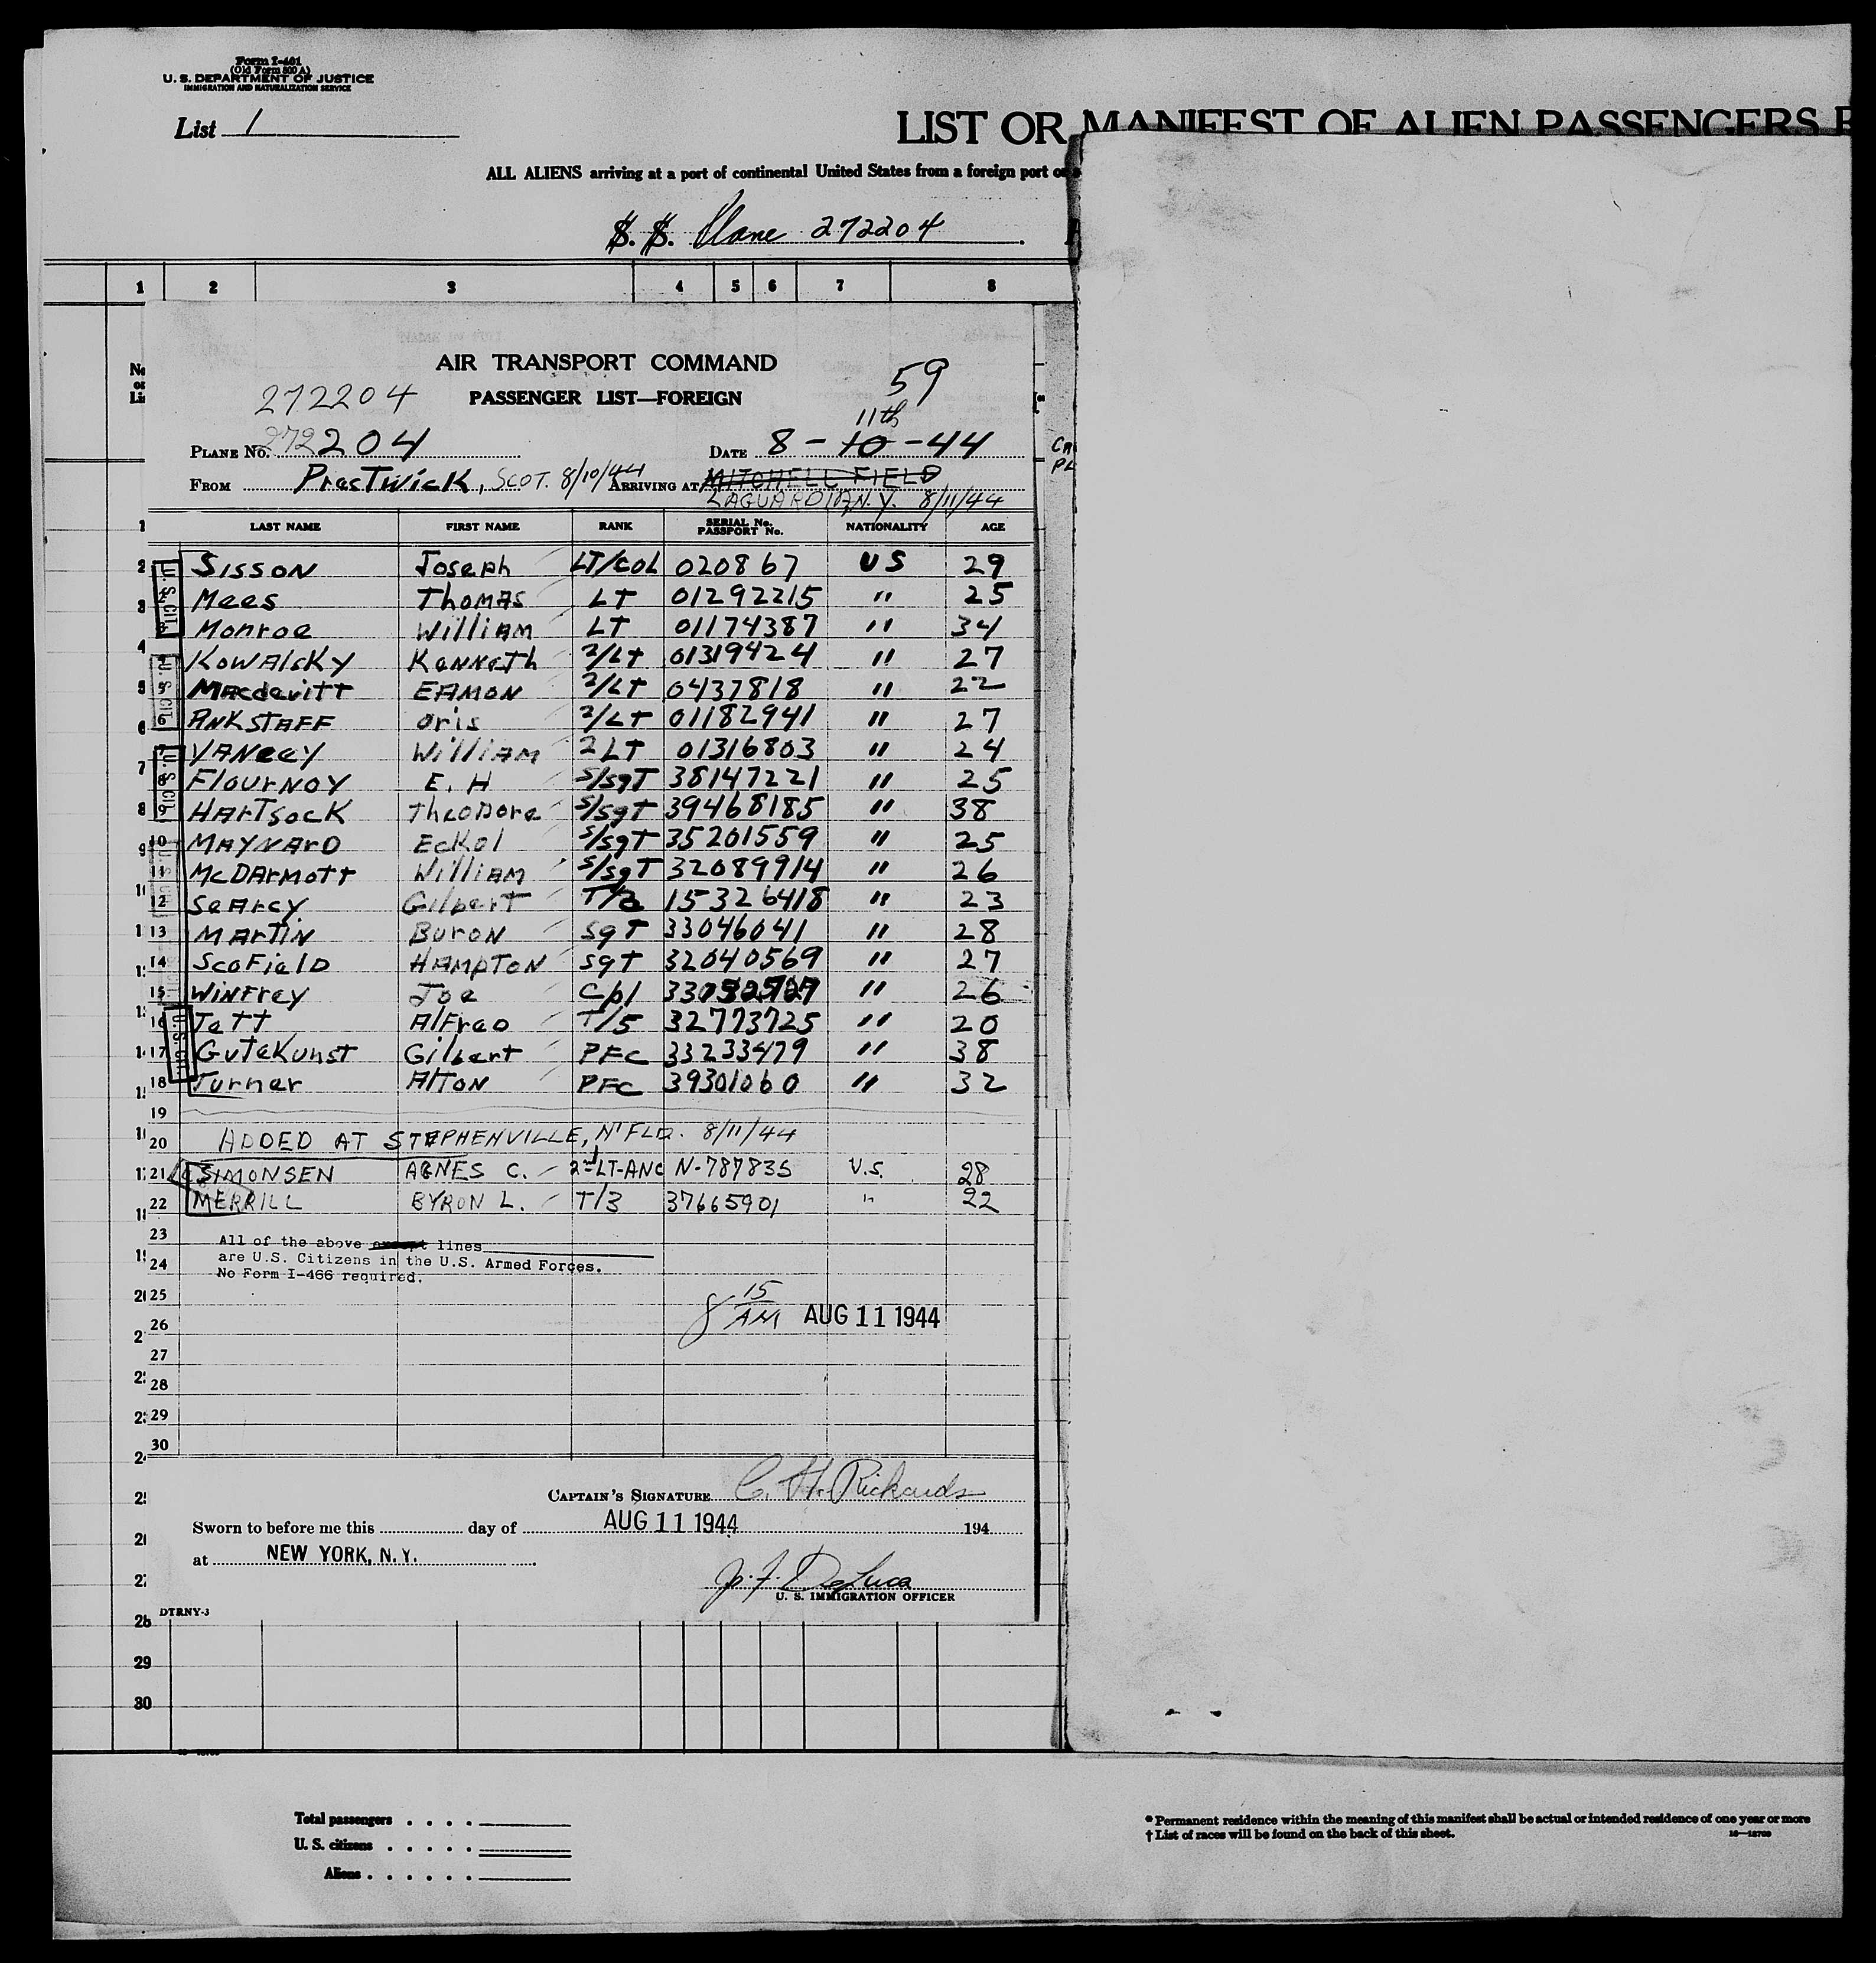 Form I-461
(Old Form 500 A)
U. S. DEPARTMENT OF JUSTICE
IMMIGRATION AND NATURALIZATION SERVICE
List 1
LIST OR MANIFEST OF ALIEN PASSENGERS
ALL ALIENS arriving at a port of continental United States from a foreign port or
S. S. Plane 272204
1 2 3 4 5 6 7 8
AIR TRANSPORT COMMAND
59
272204 PASSENGER LIST—FOREIGN
11th
PLANE No. 272204 DATE 8-10-44
FROM Prestwick, SCOT. 8/10/44 ARRIVING AT MITCHELL FIELD
LAGUARDIA, N.Y. 8/11/44
LAST NAME FIRST NAME RANK SERIAL No. PASSPORT No. NATIONALITY AGE
SISSON Joseph LT/COL 020867 US 29
Mees Thomas LT 01292215 " 25
Monroe William LT 01174387 " 34
Kowalsky Kenneth 2/LT 01319424 " 27
Macdevitt EAMON 2/LT 0437818 " 22
ANKSTAFF Oris 2/LT 01182941 " 27
YANCEY William 2LT 01316803 " 24
8 Flournoy E. H S/SgT 38147221 " 25
9 HArTsock Theodore S/SgT 39468185 " 38
10 MAYNARD Eckol S/SgT 35201559 " 25
11 McDArmott William S/SgT 32089914 " 26
12 SeArcy Gilbert T/3 15326418 " 23
13 MArtin Buron SgT 33046041 " 28
14 ScoField HAMPTON SgT 32040569 " 27
15 Winfrey Joe Cpl " 26
16 Jett Alfred T/5 32773725 " 20
17 Gutekunst Gilbert PFC 33233479 " 38
18 Turner Alton PFC 39301060 " 32
19
20 ADDED AT STEPHENVILLE, N'FLD. 8/11/44
21 SIMONSEN AGNES C. 2nd LT-ANC N-787835 U.S. 28
22 MERRILL BYRON L. T/3 37665901 " 22
23
All of the above except lines
are U.S. Citizens in the U.S. Armed Forces.
24
No Form I-466 required.
25
8 15 AM AUG 11 1944
26
27
28
29
30
CAPTAIN'S SIGNATURE C. H. Richards
Sworn to before me this day of AUG 11 1944 194
at NEW YORK, N. Y.
J. F. DeLuca
U. S. IMMIGRATION OFFICER
DTRNY-3
28
29
30
Total passengers . . . .
U. S. citizens . . . . .
Aliens . . . . . .
* Permanent residence within the meaning of this manifest shall be actual or intended residence of one year or more
† List of races will be found on the back of this sheet.